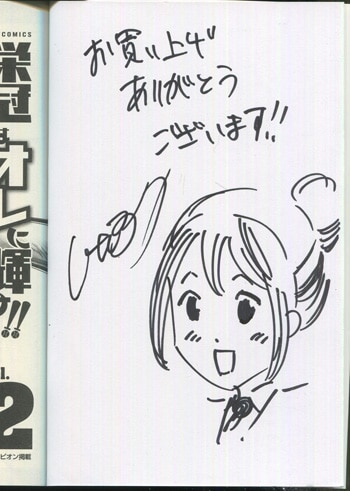 お買い上げ
ありがとう
ございます!!
COMICS
栄冠はオレに輝け!!
2